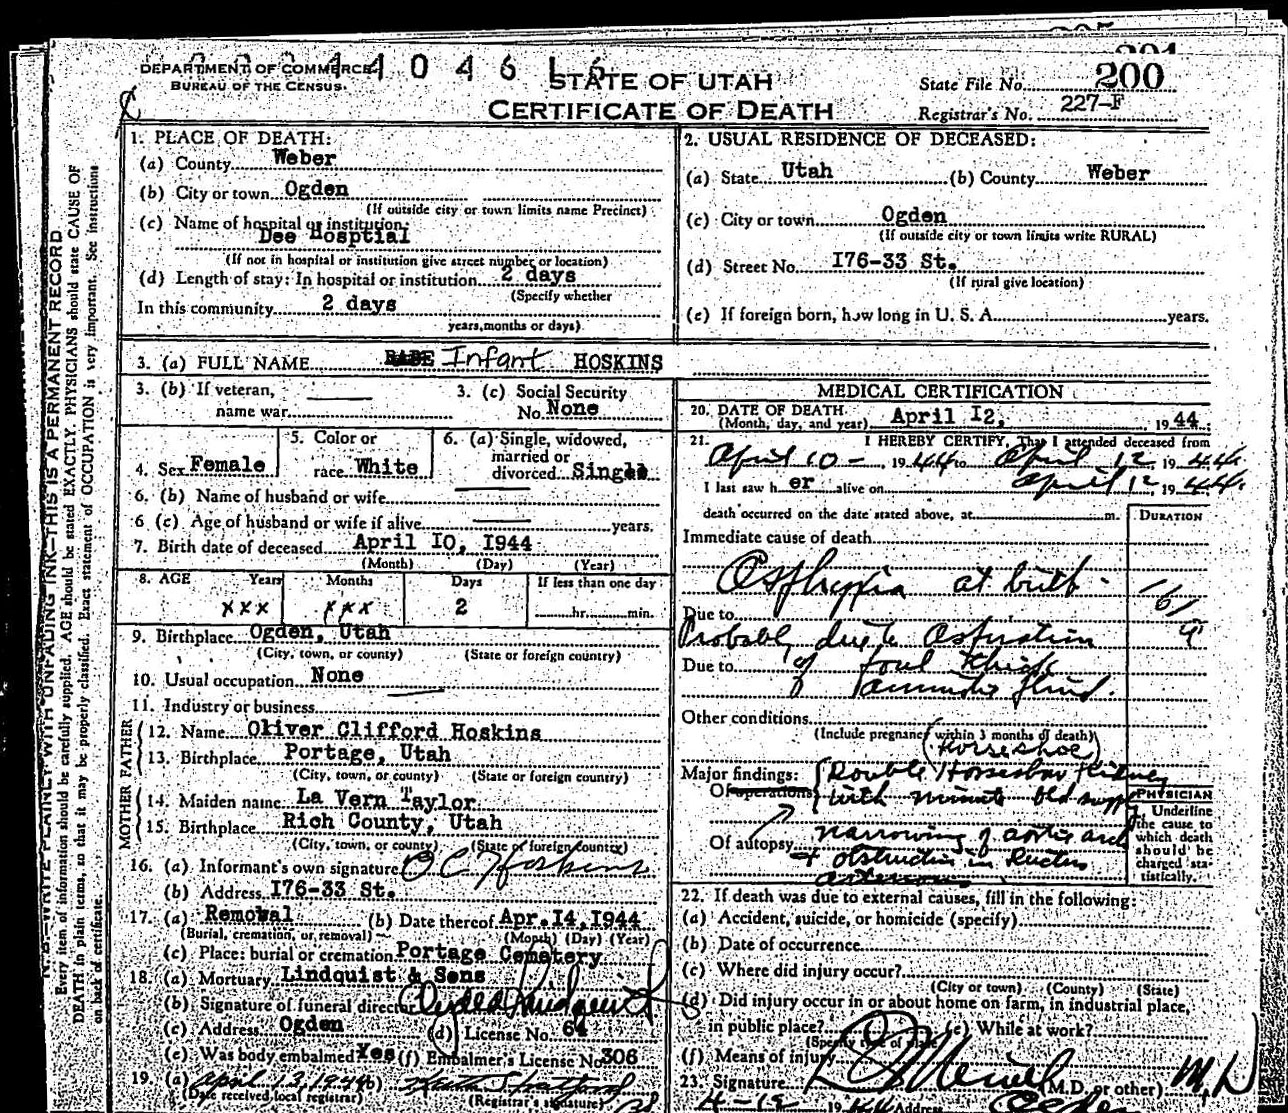 DEPARTMENT OF COMMERCE
BUREAU OF THE CENSUS.
4 0 4 6
STATE OF UTAH
CERTIFICATE OF DEATH
State File No. 200
Registrar's No. 227-F
N.B.—WRITE PLAINLY WITH UNFADING INK—THIS IS A PERMANENT RECORD
Every item of information should be carefully supplied. AGE should be stated EXACTLY. PHYSICIANS should state CAUSE OF
DEATH in plain terms, so that it may be properly classified. Exact statement of OCCUPATION is very important. See instructions
on back of certificate.
1. PLACE OF DEATH:
(a) County Weber
(b) City or town Ogden
(If outside city or town limits name Precinct)
(c) Name of hospital or institution:
Dee Hosptial
(If not in hospital or institution give street number or location)
(d) Length of stay: In hospital or institution 2 days
(Specify whether
In this community 2 days
years, months or days)
2. USUAL RESIDENCE OF DECEASED:
(a) State Utah (b) County Weber
(c) City or town Ogden
(If outside city or town limits write RURAL)
(d) Street No. I76-33 St.
(If rural give location)
(e) If foreign born, how long in U. S. A. years.
3. (a) FULL NAME Infant HOSKINS
3. (b) If veteran,
name war
3. (c) Social Security
No. None
4. Sex Female
5. Color or
race White
6. (a) Single, widowed,
married or
divorced Single
6. (b) Name of husband or wife
6 (c) Age of husband or wife if alive years.
7. Birth date of deceased April I0, I944
(Month) (Day) (Year)
8. AGE Years Months Days If less than one day
xxx xxx 2 hr. min.
9. Birthplace Ogden, Utah
(City, town, or county) (State or foreign country)
10. Usual occupation None
11. Industry or business
FATHER
12. Name Oliver Clifford Hoskins
13. Birthplace Portage, Utah
(City, town, or county) (State or foreign country)
MOTHER
14. Maiden name La Vern Taylor
15. Birthplace Rich County, Utah
(City, town, or county) (State or foreign country)
16. (a) Informant's own signature O C Hoskins
(b) Address I76-33 St.
17. (a) Removal (b) Date thereof Apr. I4, I944
(Burial, cremation, or removal) (Month) (Day) (Year)
(c) Place: burial or cremation Portage Cemetery
18. (a) Mortuary Lindquist & Sons
(b) Signature of funeral director
(c) Address Ogden (d) License No. 64
(e) Was body embalmed Yes (f) Embalmer's License No 306
19. (a) April 13, 1944 (b)
(Date received local registrar) (Registrar's signature)
MEDICAL CERTIFICATION
20. DATE OF DEATH
(Month, day, and year) April I2, 1944
21. I HEREBY CERTIFY, That I attended deceased from
April 10 - , 1944 to April 12, 1944
I last saw her alive on April 12, 1944
death occurred on the date stated above, at m.
DURATION
Immediate cause of death
Asphyxia at birth
Due to
Probably due to Aspiration
Due to of foul thick
fluid.
Other conditions
(Include pregnancy within 3 months of death)
(Horseshoe)
Major findings: Double Horseshoe Kidney
Of operations with minute bld supply
Of autopsy narrowing of aortic arch
+ obstruction in Ductus
arteriosus
PHYSICIAN
Underline
the cause to
which death
should be
charged sta-
tistically.
22. If death was due to external causes, fill in the following:
(a) Accident, suicide, or homicide (specify)
(b) Date of occurrence
(c) Where did injury occur?
(City or town) (County) (State)
(d) Did injury occur in or about home on farm, in industrial place,
in public place? (e) While at work?
(Specify type of place)
(f) Means of injury
23. Signature (M.D. or other) M.D.
1944 Address